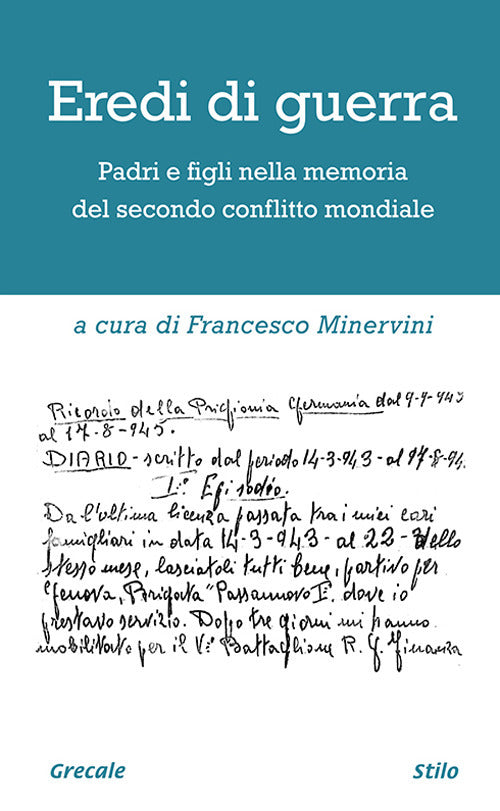 Eredi di guerra
Padri e figli nella memoria
del secondo conflitto mondiale
a cura di Francesco Minervini
Ricordo della Prigionia Germania dal 9-9-943
al 17-8-945.
DIARIO - scritto dal periodo 14-3-943 - al 17-8-94.
I° Episodio.
Da l'ultima licenza passata tra i miei cari
famigliari in data 14-3-943 - al 22- dello
stesso mese, lasciatoli tutti bene, partivo per
Genova, Brigata "Passanuovo I°. dove io
prestavo servizio. Dopo tre giorni mi hanno
mobilitato per il V° Battaglione R. G. Finanza
Grecale
Stilo